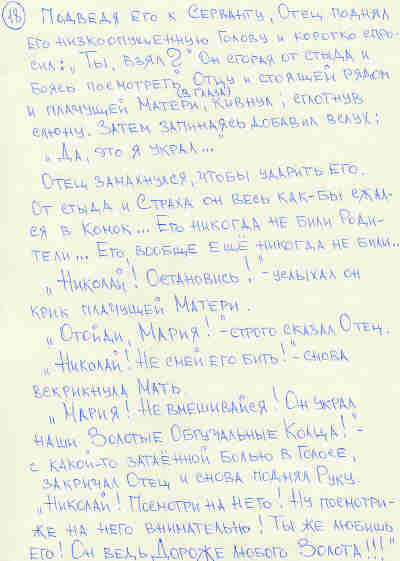 18
Подведя его к Серванту, Отец поднял
его низкоопущенную Голову и коротко спро-
сил: „Ты, взял?" Он сгорая от стыда и
боясь посмотреть Отцу (в глаза) и стоящей рядом
и плачущей Матери, кивнул; сглотнув
слюну. Затем запинаясь добавил вслух:
„Да, это я украл..."
Отец замахнулся, чтобы ударить его.
От стыда и Страха он весь как-бы сжал-
ся в Комок... Его никогда не били Роди-
тели... Его, вообще ещё никогда не били..
„Николай! Остановись!"-услыхал он
крик плачущей Матери.
„Отойди, Мария!"-строго сказал Отец.
„Николай! Не смей его бить!"-снова
вскрикнула Мать.
„Мария! Не вмешивайся! Он украл
наши Золотые Обручальные Колца!"-
с какой-то затаённой Болью в Голосе,
закричал Отец и снова поднял Руку.
„Николай! Посмотри на него! Ну посмотри-
же на него внимательно! Ты же любишь
его! Он ведь, Дороже любого Золота!!!"